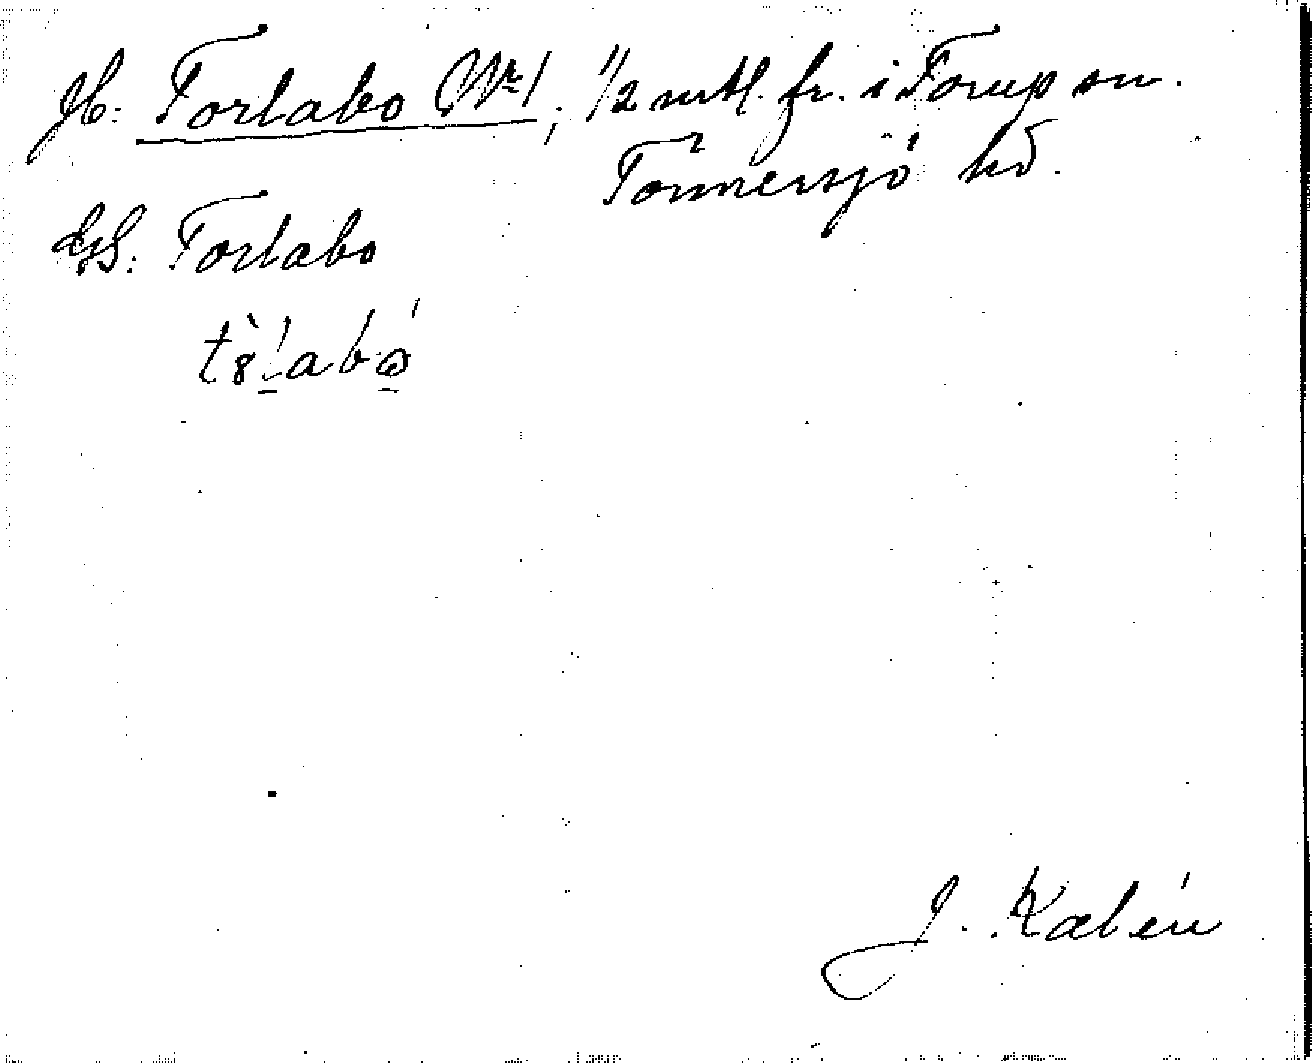 Jb: Torlabo No 1; 1/2 mtl. fr. i Torup sn.
Tönnersjö hd.
GS: Torlabo
J. Kalén